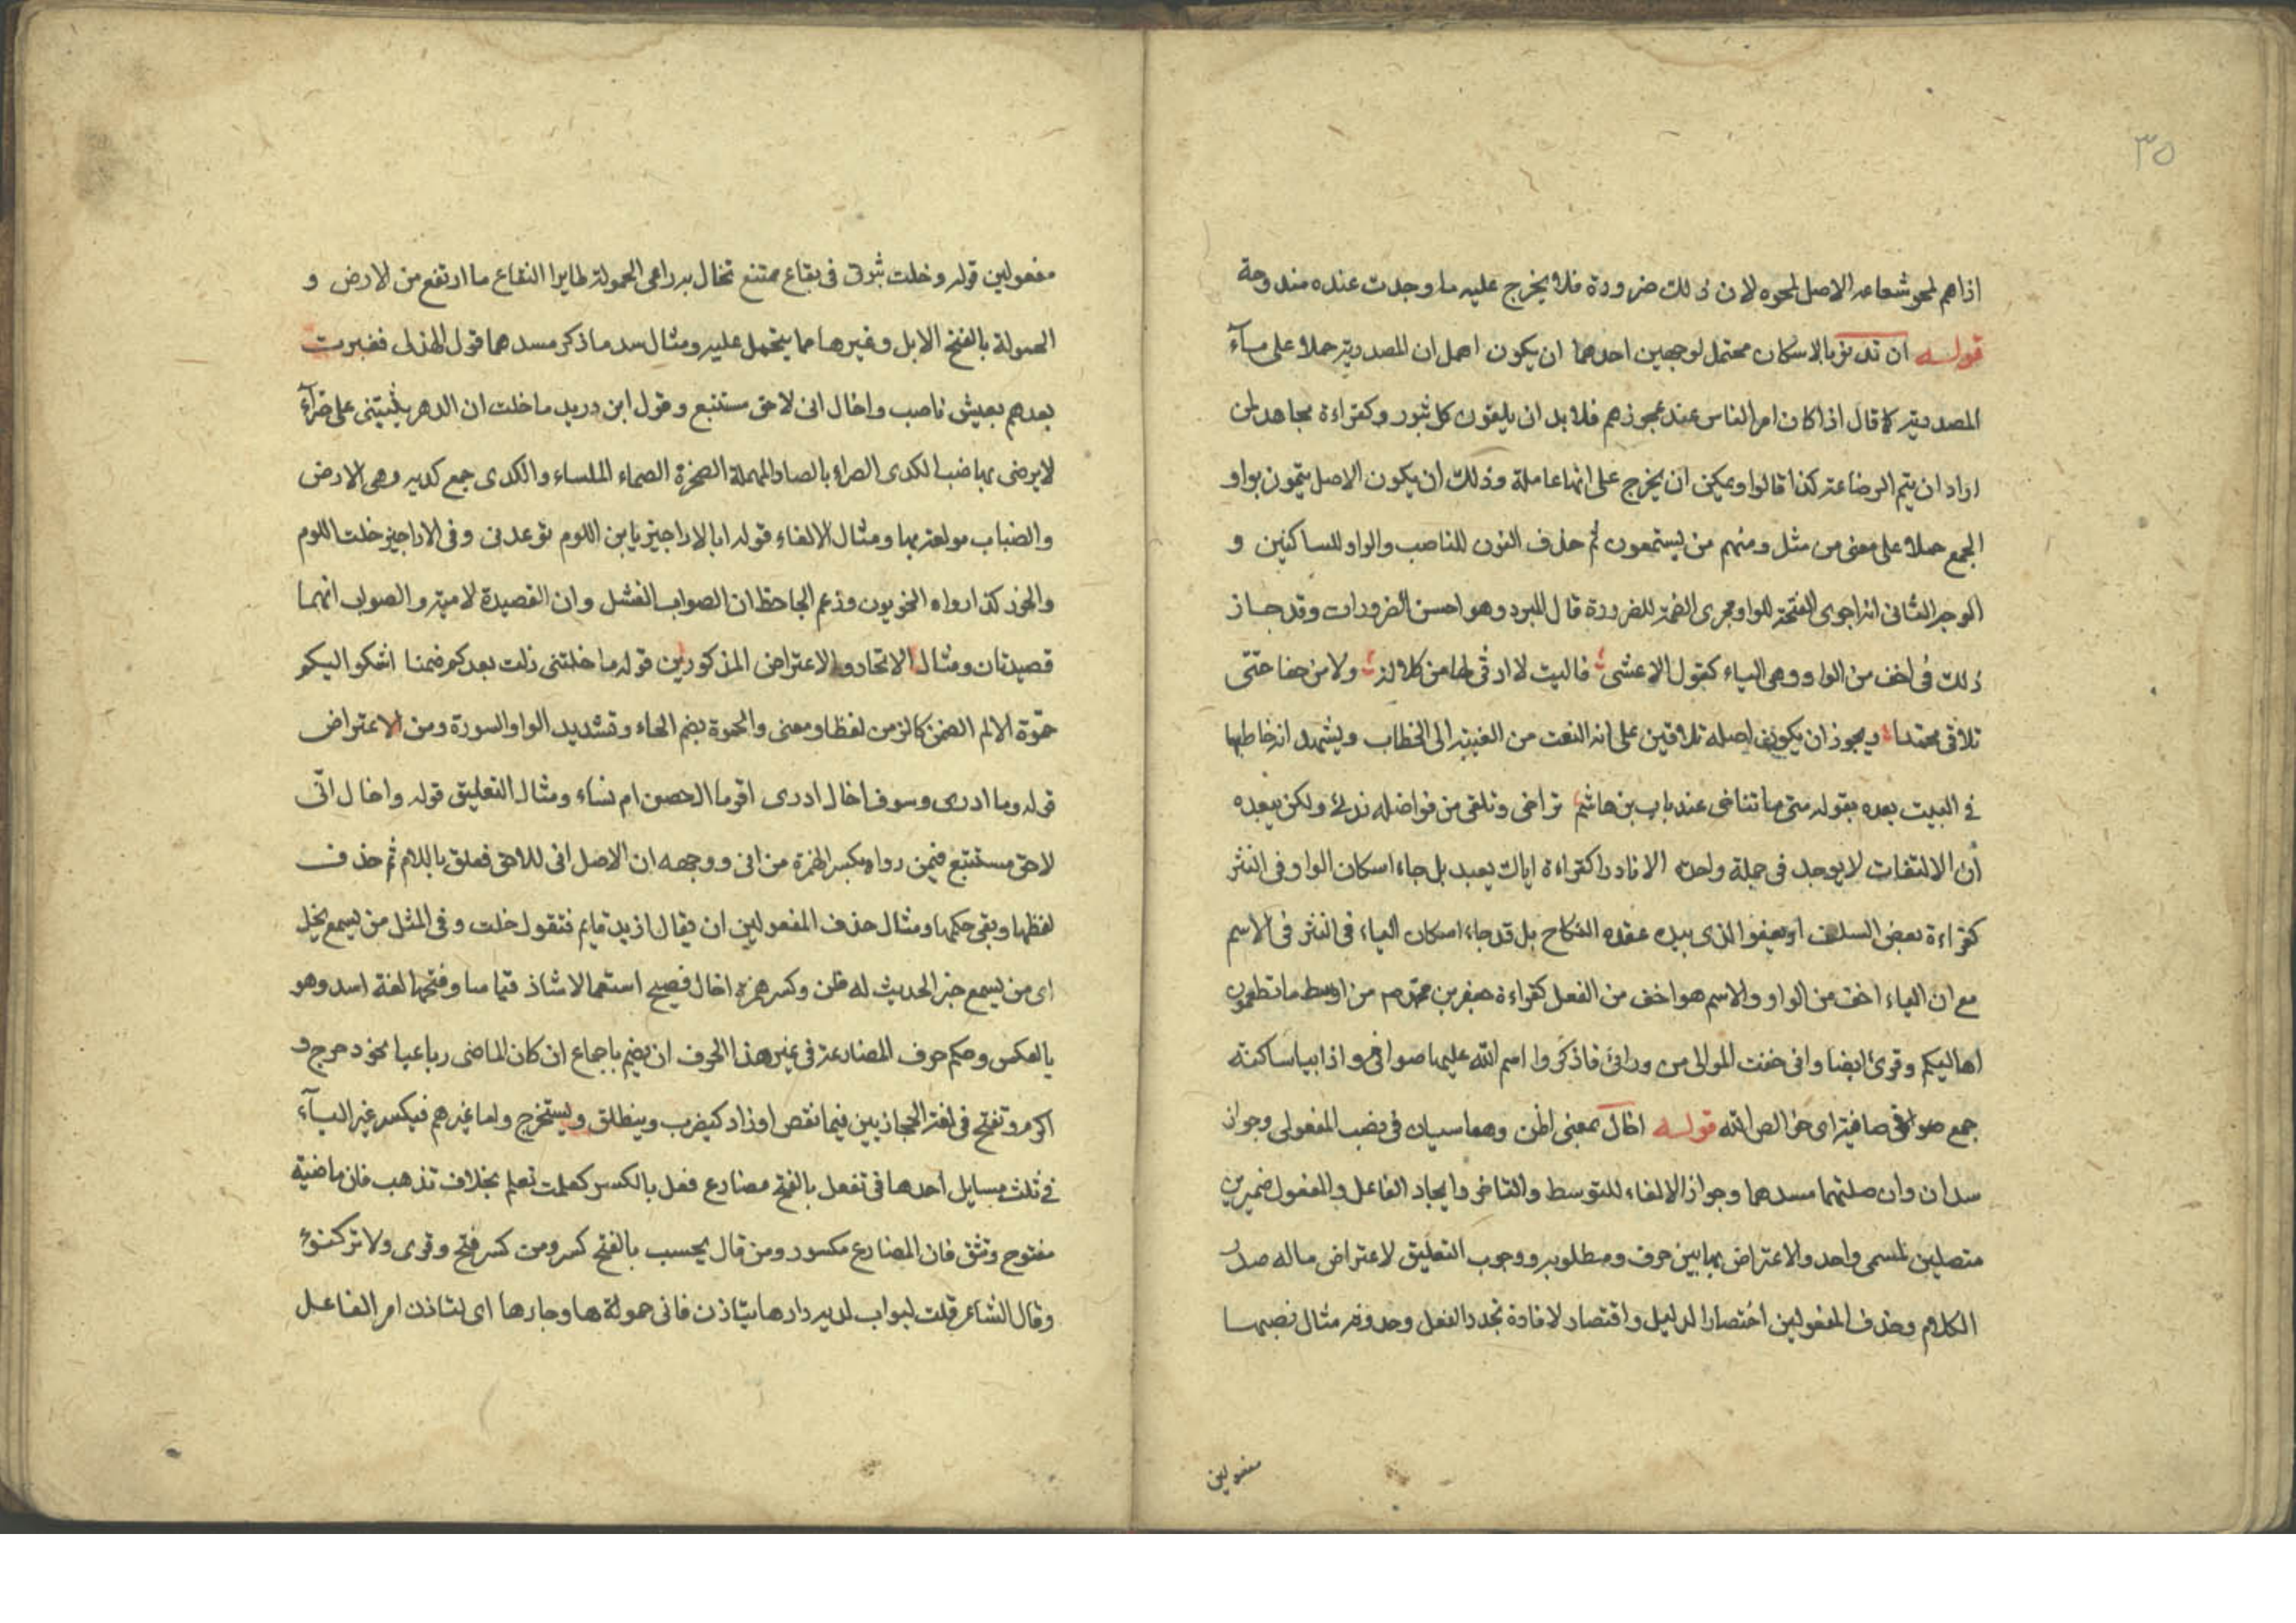 ٣٥
اذاهم لحو شعاعه الاصل لحوه لان ذلك ضرورة فلا يخرج عليه ما وجدت عنده مندوحة
قوله ان تدنو بالاسكان محتمل لوجهين احدهما ان يكون اهمل ان المصدرية حملا على مآء
المصدرية كما قال اذا كان امر الناس عند عجوزهم فلا بد ان يلقون كل ثبور وكقراءة مجاهد لمن
اراد ان يتم الرضاعة كذا قالوا ويمكن ان يخرج على انها عاملة وذلك ان يكون الاصل يتمون بواو
الجمع حملا على معنى من مثل ومنهم من يستمعون ثم حذف النون للناصب والواو للساكنين و
الوجه الثانى انه اجرى الفتحة للواو مجرى الضمة للضرورة قال المبرد وهو احسن الضرورات وقد جاز
ذلك فى اخف من الواو وهى الياء كقول الاعشى فاليت لا ارثى لها من كلالة ولا من حفا حتى
تلاقى محمدا ويجوز ان يكون اصله تلاقين على انه التفت من الغيبة الى الخطاب ويشهد انه خاطبها
فى البيت بعده بقوله متى ما تناخى عند باب بن هاشم تراخى وتلقى من فواضله ندى ولكن يبعده
ان الالتفات لا يوجد فى جملة واحدة الا نادرا كقراءة اياك يعبد بل جاء اسكان الواو فى النثر
كقراءة بعض السلف او يعفو الذى بيده عقده النكاح بل قد جاء اسكان الياء فى النثر فى الاسم
مع ان الياء اخف من الواو والاسم هو اخف من الفعل كقراءة جعفر بن محمد م من اوسط ما تطعمون
اهاليكم وقرئ ايضا وانى خفت الموالى من ورائ فاذكروا اسم الله عليها صوافى واذا بياء ساكنة
جمع صوافى صافية اى خوالص لله قوله اخال بمعنى اظن وهما سيان فى نصب المفعولى وجواز
سد ان وان صلتهما مسدهما وجواز الالغاء للتوسط والتاخر وايجاد الفاعل والمفعول ضميرين
متصلين لمسمى واحد والاعتراض بهما بين حرف ومطلوبه ووجوب التعليق لاعتراض ماله صدر
الكلام وحذف المفعولين اختصارا لدليل واقتصار لافادة تجدد الفعل وحدوثه مثال نصبهما
مفعولين
مفعولين قوله وخلت بيوتى فى يفاع ممتنع تخال به راعى الحمولة طايرا اليفاع ما ارتفع من الارض و
الحمولة بالفتح الابل وغيرها مما يتحمل عليه ومثال سد ما ذكر مسدهما قول الهذلى فغبرت
بعدهم بعيش ناصب واخال انى لاحق مستتبع وقول ابن دريد ما خلت ان الدهر يثنيتنى على ضرآء
لا يرضى بها ضب الكدى الصراء بالصاد المهملة الصخرة الصماء الملساء والكدى جمع كدية وهى الارض
والضباب مولعة بها ومثال الالغاء قوله ابا الاراجيز يا بن اللوم توعدنى وفى الاراجيز خلت اللوم
والخور كذا رواه النحويون وزعم الجاحظ ان الصواب الفشل وان القصيدة لامية والصواب انهما
قصيدتان ومثال الاتحاد والاعتراض المذكورين قوله ما خلتنى زلت بعدكم ضمنا اشكو اليكم
حمّوة الالم الضمن كالزمن لفظا ومعنى والحموة بضم الحاء وتشديد الواو السورة ومن الاعتراض
قوله وما ادرى وسوف اخال ادرى اقوم ال حصن ام نساء ومثال التعليق قوله واخال انّى
لاحق مستتبع فيمن رواه بكسر الهمزة من انى ووجهه ان الاصل انى للاحق فعلق باللام ثم حذف
لفظها وبقى حكمها ومثال حذف المفعولين ان يقال ازيد قايم فتقول خلت وفى المثل من يسمع يخل
اى من يسمع خبر الحديث له ظن وكسر همزة اخال فصيح استعمالا شاذ قياسا وفتحها لغة اسد وهو
بالعكس وحكم حرف المضارعة فى غير هذا الحرف ان يضم باجماع ان كان الماضى رباعيا نحو دحرج و
اكرم وتفتح فى لغة الحجازيين فيما نقص او زاد كيضرب وينطلق ويستخرج واما غيرهم فيكسر غير اليآء
فى ثلث مسايل احدها فى تفعل بالفتح مضارع فعل بالكسر كعلمت تعلم بخلاف تذهب فان ماضيه
مفتوح وتثق فان المضارع مكسور ومن قال يحسب بالفتح كسر ومن كسر فتح وقرى ولا تركنوا
وقال الشاعر قلت لبواب لديه دارها تيذن فانى حموئها وجارها اى لتاذن امر الفاعل